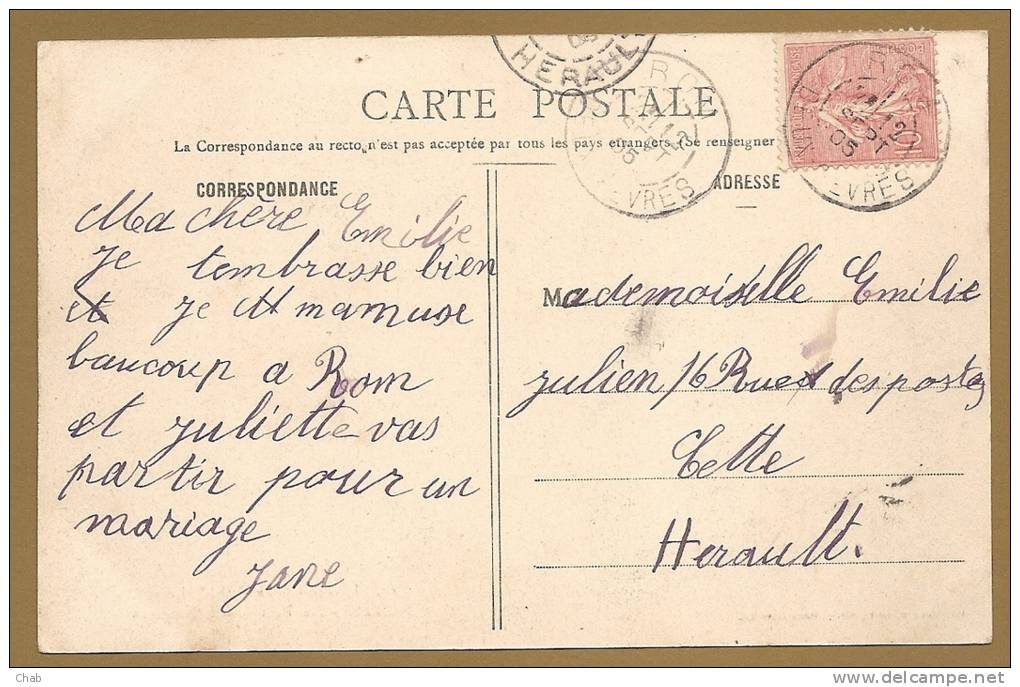 HERAUL
CARTE POSTALE
La Correspondance au recto n'est pas acceptée par tous les pays étrangers (Se renseigner
CORRESPONDANCE
Ma chère Emilie
Je tembrasse bien
et je m'amuse
baucoup a Rom
et juliette vas
partir pour un
mariage
Jane
RO
12
SEPT
05
EVRES
ADRESSE
Mademoiselle Emilie
julien 16 Rue des postes
Cette
Herault.
Chab
www.delcampe.net